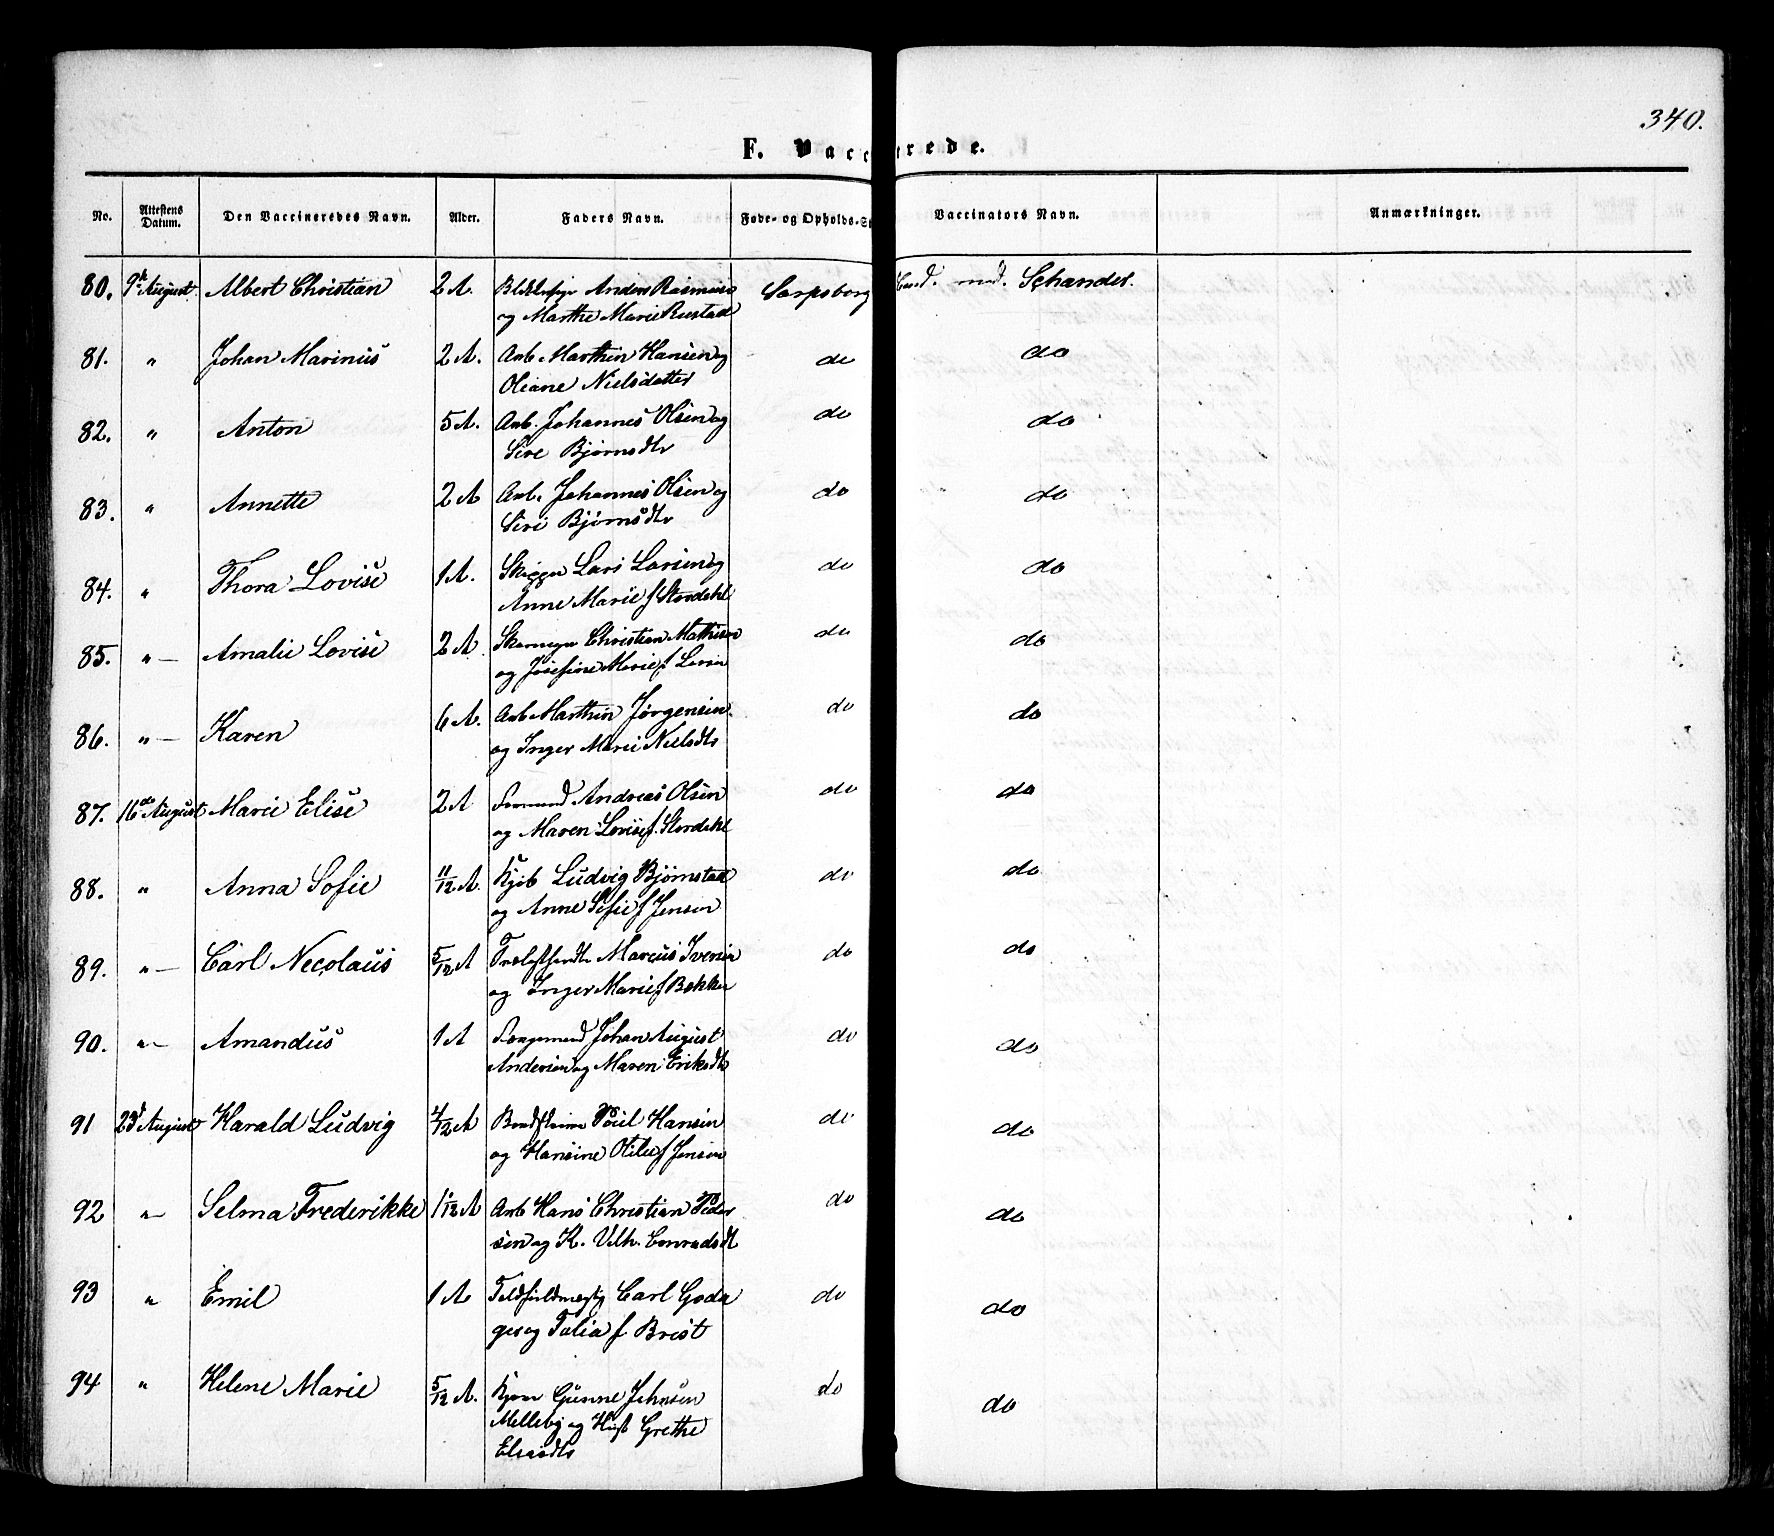 340.
F. Vacc rede.
No. Attestens Datum. Den Vaccineredes Navn. Alder. Faders Navn. Føde- og Opholds-St Vaccinators Navn. Anmærkninger.
80. 9de August Albert Christian 2 A. Anders Rasmus Sarpsborg Cand. med. Schander.
og Marthe Marie Rustad
81. " Johan Marinus 2 A. Arb. Marthin Hansen og do do
Oleane Nielsdatter
82. " Anton 5 A. Arb. Johannes Olsen og do do
Sire Bjørnsdtr
83. " Annette 2 A Arb. Johannes Olsen og do do
Siri Bjørnsdtr
84. " Thora Lovise 1 A. Skipper Lars Larsen og do do
Anne Marie f Stordehl
85. " — Amalie Lovise 2 A. Christian Mathisen do do
og Josefine Marie f Larsen
86. " — Karen 6 A. Arb Marthin Jørgensen do do
og Inger Marie Nielsdtr
87. 16de August Marie Elise 2 A Formand Andreas Olsen do do
og Maren Lovise f. Stordehl
88. " Anna Sofie 11/12 A. Kjøb Ludvig Bjørnstad do do
og Anne Sofie f Jensen
89. " — Carl Necolaus 5/12 A Marcus Iversen do do
og Inger Marie f Bekken
90. " — Amandus 1 A Johan August do do
Andersen og Maren Eriksdtr
91 23d August Harald Ludvig 4/12 A Poul Hansen do do
og Hansine Otilie f Jensen
92 " — Selma Frederikke 1 1/12 A Arb Hans Christian Peder do do
sen og K. Vilh. Conradsdt
93 " Emil 1 A Toldfuldmægtig Carl Goda do do
ges og Talia f Brest
94 " Helene Marie 5/12 A. Gunne Johnsen do do
Melleby og Hust Grethe